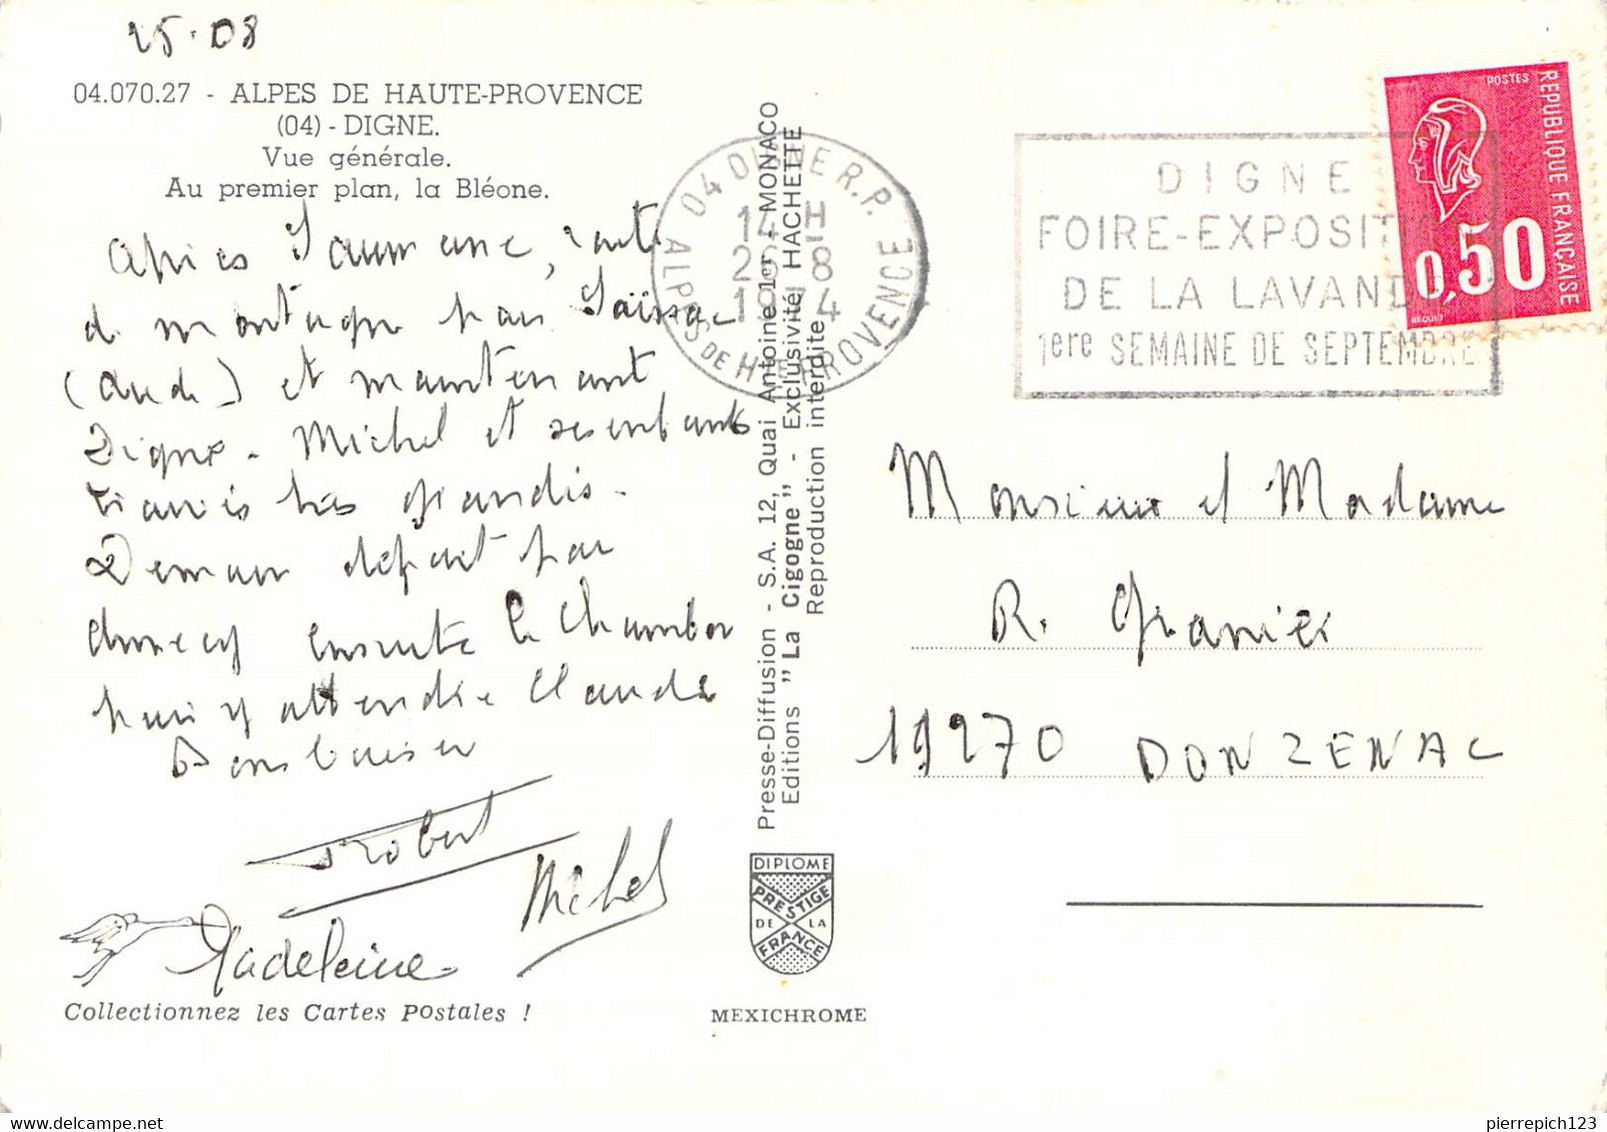 25.08
04.070.27 - ALPES DE HAUTE-PROVENCE
(04) - DIGNE.
Vue générale.
Au premier plan, la Bléone.
Après Saumane, route
de montagne par Saissac
(Aude) et maintenant
Digne - Michel et ses enfants
très grandis.
Demain départ par
Annecy ensuite le Chambon
puis y attendre Claude
Bons baisers
Robert
Michel
Madeleine
Collectionnez les Cartes Postales !
Presse-Diffusion - S.A. 12, Quai Antoine 1er - MONACO
Editions "La Cigogne" - Exclusivité HACHETTE
Reproduction interdite
DIPLOME
PRESTIGE
DE LA
FRANCE
MEXICHROME
04 DIGNE R.P.
14 H
26 - 8
1974
ALPES DE HTE PROVENCE
DIGNE
FOIRE-EXPOSITION
DE LA LAVANDE
1ere SEMAINE DE SEPTEMBRE
POSTES
REPUBLIQUE FRANÇAISE
0,50
BEQUET
Monsieur et Madame
R. Granier
19270 DONZENAC
pierrepich123